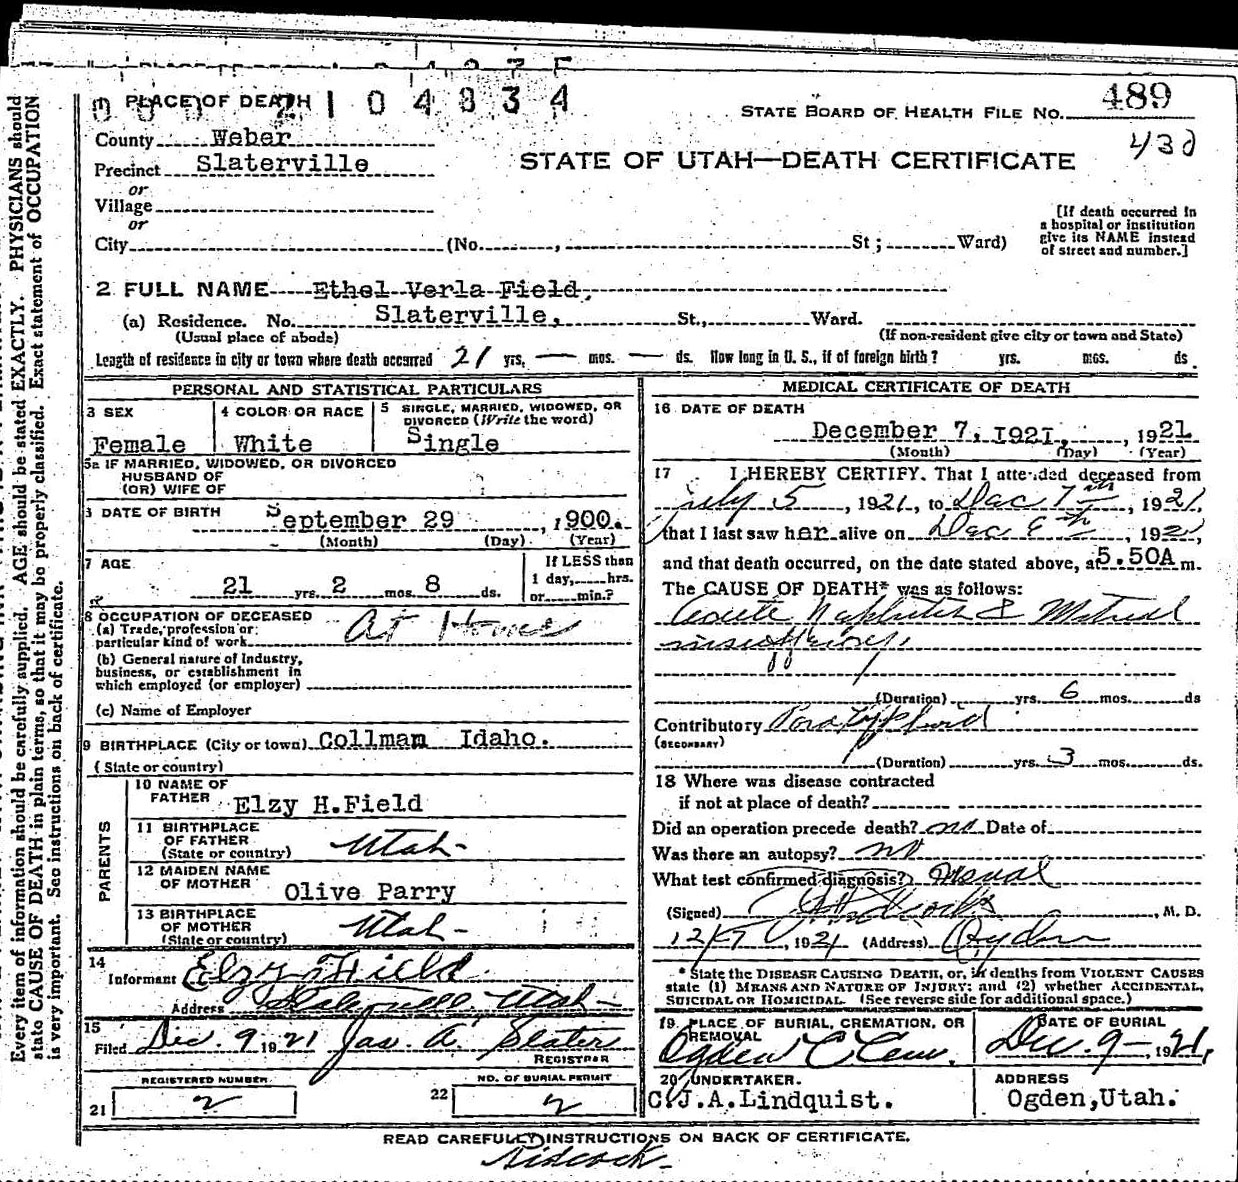 PLACE OF DEATH
2104834
STATE BOARD OF HEALTH FILE NO. 489
County Weber
432
Precinct Slaterville
STATE OF UTAH—DEATH CERTIFICATE
or
Village
or
City (No. , St ; Ward)
[If death occurred in a hospital or institution give its NAME instead of street and number.]
2 FULL NAME Ethel Verla Field,
(a) Residence. No. Slaterville, St., Ward.
(Usual place of abode) (If non-resident give city or town and State)
Length of residence in city or town where death occurred 21 yrs. — mos. — ds. How long in U. S., if of foreign birth? yrs. mos. ds.
PERSONAL AND STATISTICAL PARTICULARS
3 SEX
Female
4 COLOR OR RACE
White
5 SINGLE, MARRIED, WIDOWED, OR DIVORCED (Write the word)
Single
5a IF MARRIED, WIDOWED, OR DIVORCED
HUSBAND OF
(OR) WIFE OF
DATE OF BIRTH September 29, 1900.
(Month) (Day) (Year)
7 AGE
21 yrs. 2 mos. 8 ds.
If LESS than
1 day, hrs.
or min.?
8 OCCUPATION OF DECEASED
(a) Trade, profession or
particular kind of work At Home
(b) General nature of Industry,
business, or establishment in
which employed (or employer)
(c) Name of Employer
9 BIRTHPLACE (City or town) Collman Idaho.
(State or country)
PARENTS
10 NAME OF FATHER Elzy H.Field
11 BIRTHPLACE OF FATHER (State or country) Utah-
12 MAIDEN NAME OF MOTHER Olive Parry
13 BIRTHPLACE OF MOTHER (State or country) Utah-
14
Informant Elzy H Field
Address Slaterville Utah-
15
Filed Dec. 9 1921 Jas A. Slater
REGISTRAR
REGISTERED NUMBER
21 2
NO. OF BURIAL PERMIT
22 2
MEDICAL CERTIFICATE OF DEATH
16 DATE OF DEATH
December 7, 1921, , 1921
(Month) (Day) (Year)
17 I HEREBY CERTIFY. That I attended deceased from
July 5, 1921, to Dec 7th, 1921,
that I last saw her alive on Dec 6th, 192 ,
and that death occurred, on the date stated above, at 5.50A m.
The CAUSE OF DEATH* was as follows:
Acute Nephritis & Mitral
insufficiency.
(Duration) yrs. 6 mos. ds
Contributory Paratyphoid
(SECONDARY)
(Duration) yrs. 3 mos. ds.
18 Where was disease contracted
if not at place of death?
Did an operation precede death? no Date of
Was there an autopsy? no
What test confirmed diagnosis? usual
(Signed) , M. D.
12/7, 1921 (Address) Ogden
* State the DISEASE CAUSING DEATH, or, in deaths from VIOLENT CAUSES
state (1) MEANS AND NATURE OF INJURY; and (2) whether ACCIDENTAL,
SUICIDAL OR HOMICIDAL. (See reverse side for additional space.)
19 PLACE OF BURIAL, CREMATION, OR REMOVAL
Ogden C Cem.
DATE OF BURIAL
Dec. 9-, 1921,
20 UNDERTAKER.
C.J.A.Lindquist.
ADDRESS
Ogden,Utah.
READ CAREFULLY INSTRUCTIONS ON BACK OF CERTIFICATE.
Every item of information should be carefully supplied. AGE should be stated EXACTLY. PHYSICIANS should
state CAUSE OF DEATH in plain terms, so that it may be properly classified. Exact statement of OCCUPATION
is very important. See instructions on back of certificate.